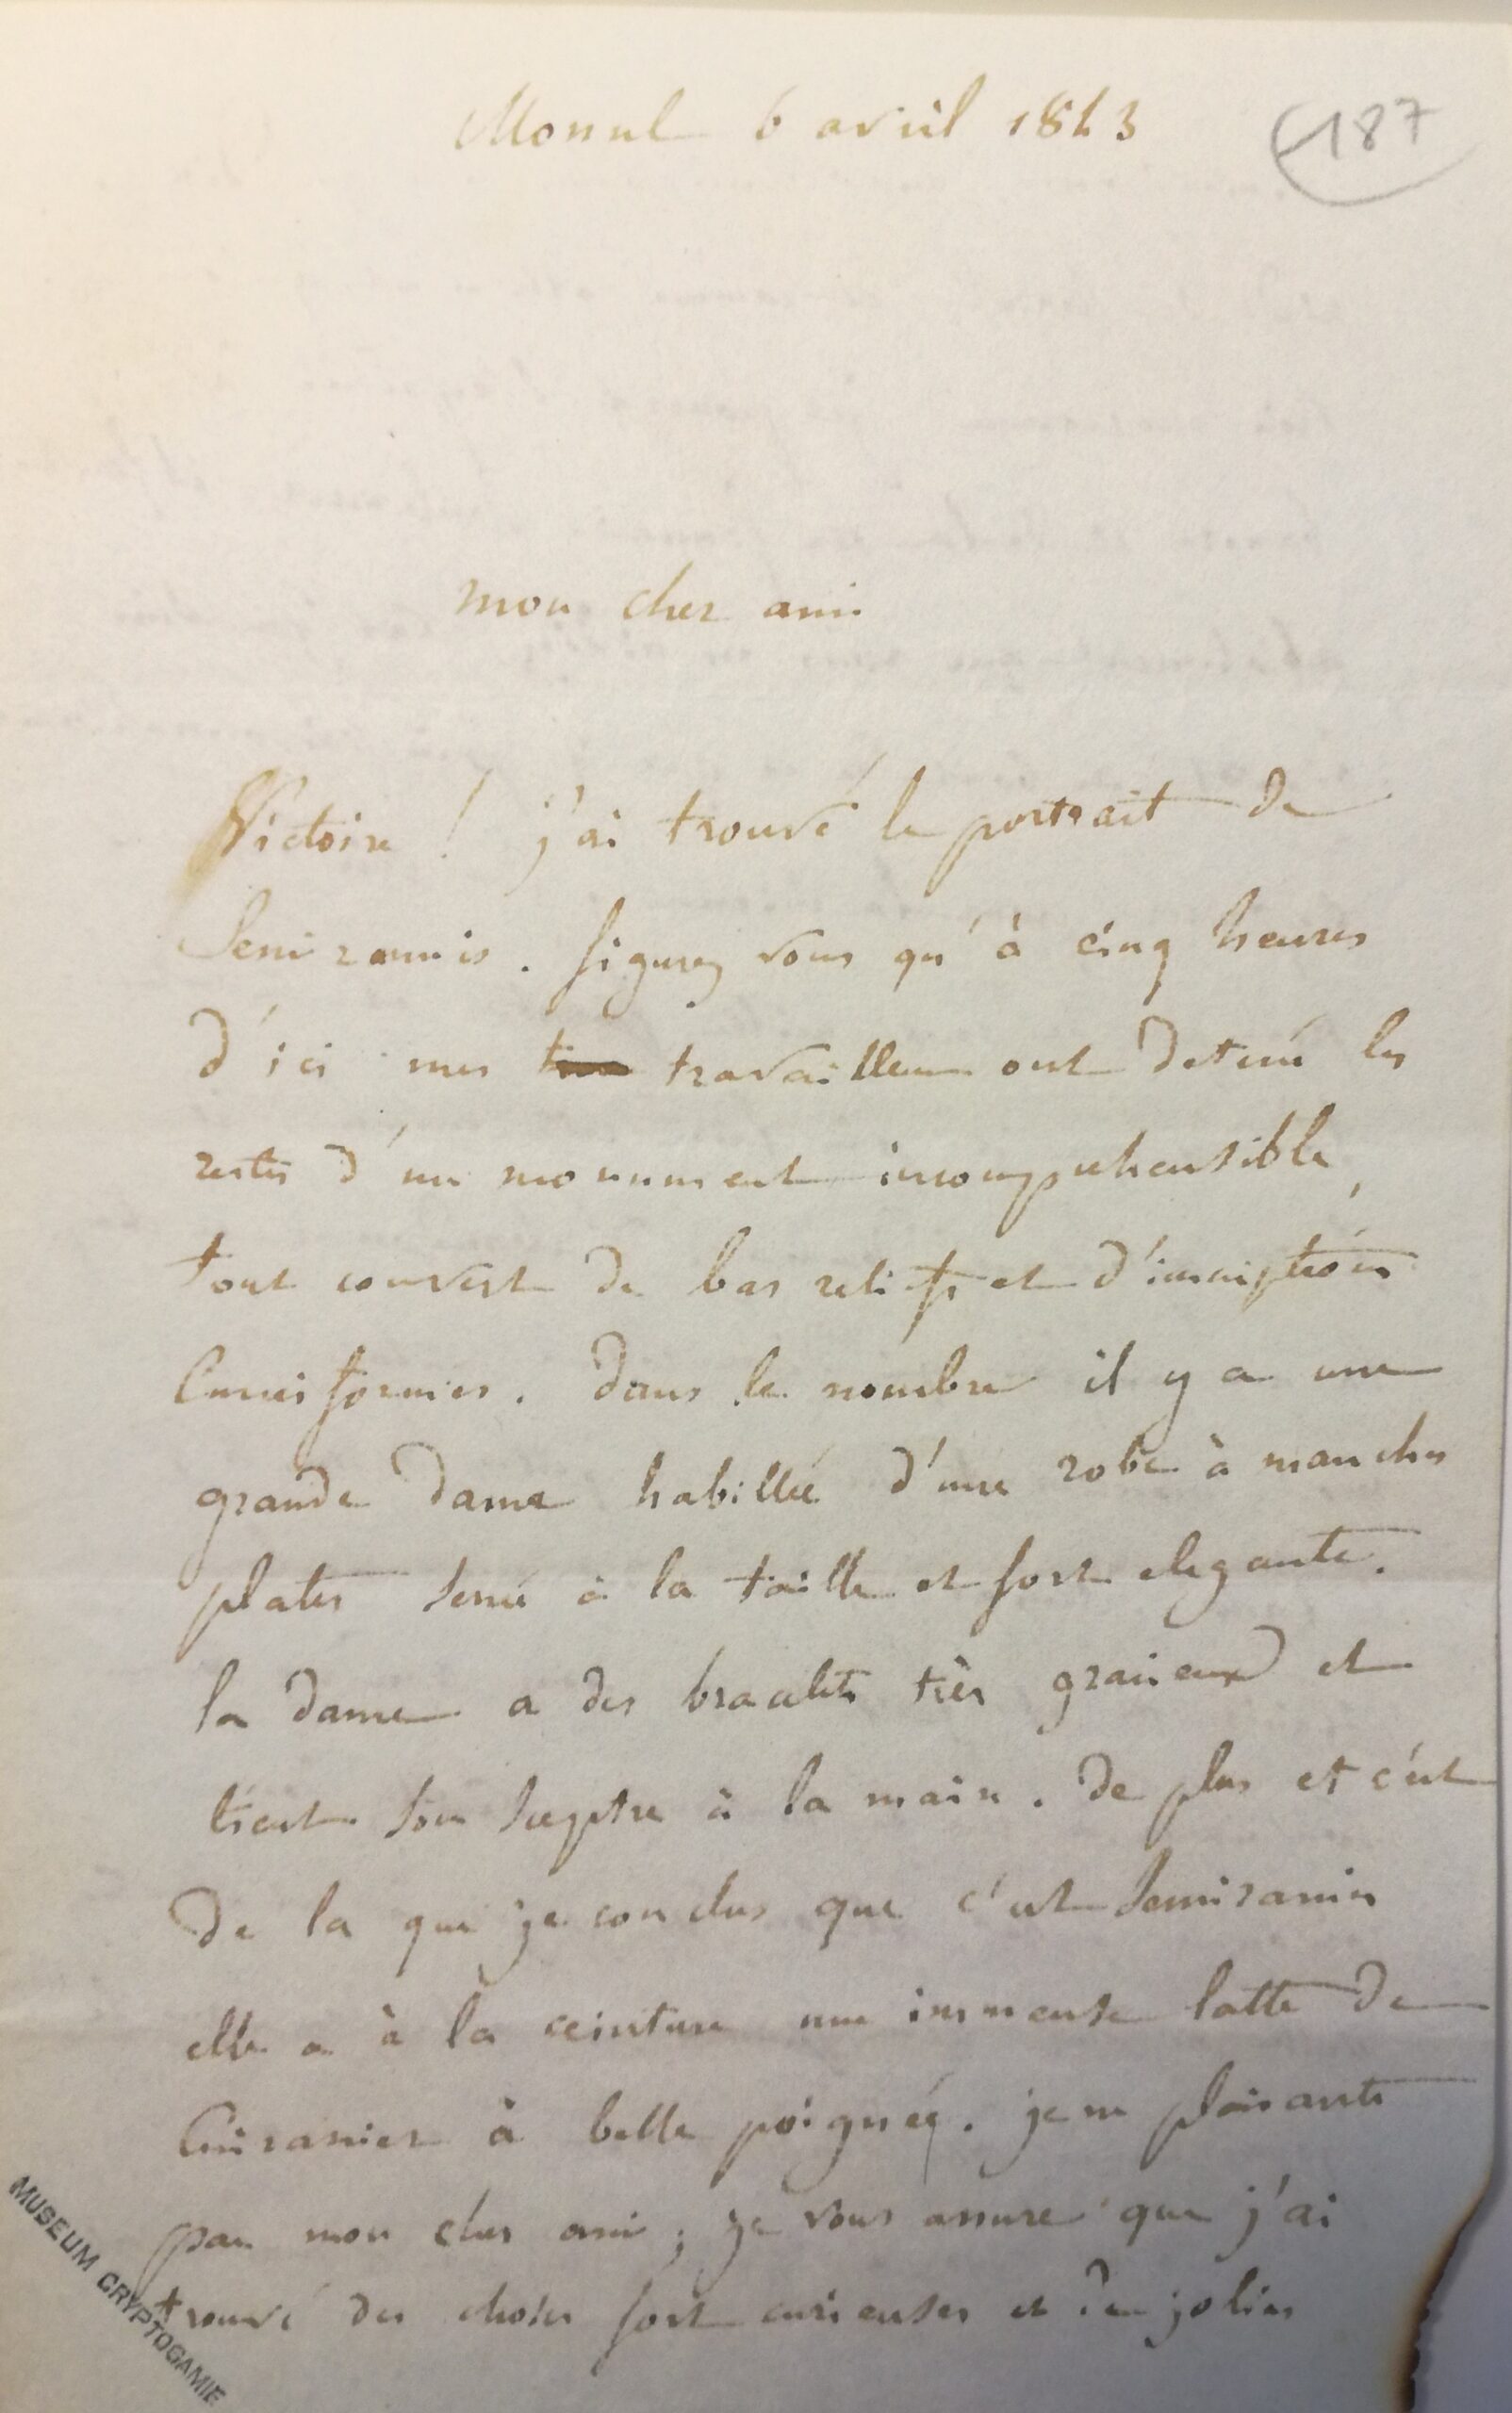 Mossul 6 avril 1843
187
mon cher ami
Victoire ! j'ai trouvé le portrait de
Semiramis . figurez vous qu'à cinq heures
d'ici mes travailleurs ont deterré les
restes d'un monument incomprehensible,
tout couvert de bas reliefs et d'inscriptions
Cuneiformes . dans le nombre il y a une
grande dame habillée d'une robe à manches
plates serré à la taille et fort elegante.
la dame a des bracelets très gracieux et
tient son sceptre à la main . de plus et c'est
de la que je conclus que c'est Semiramis
elle a à la ceinture une immense latte de
Cuirassier à belle poignée . je ne plaisante
pas mon cher ami ; je vous assure que j'ai
trouvé des choses fort curieuses et de jolies
MUSEUM CRYPTOGAMIE